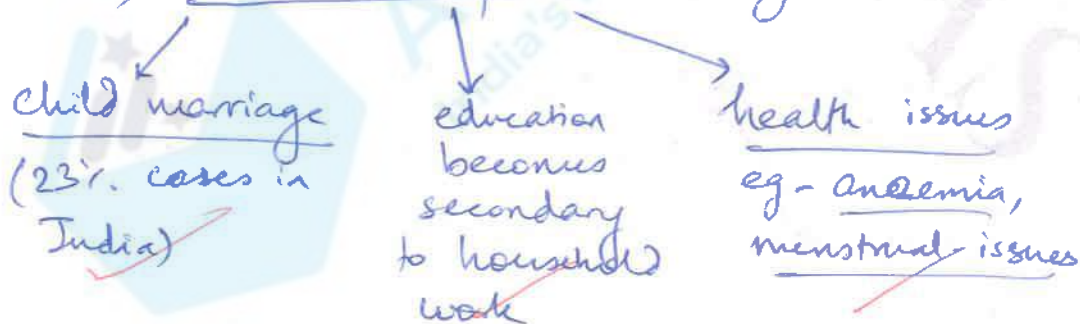 child marriage
(23% cases in
India)
education
becomes
secondary
to household
work
health issues
eg - anaemia,
menstrual issues